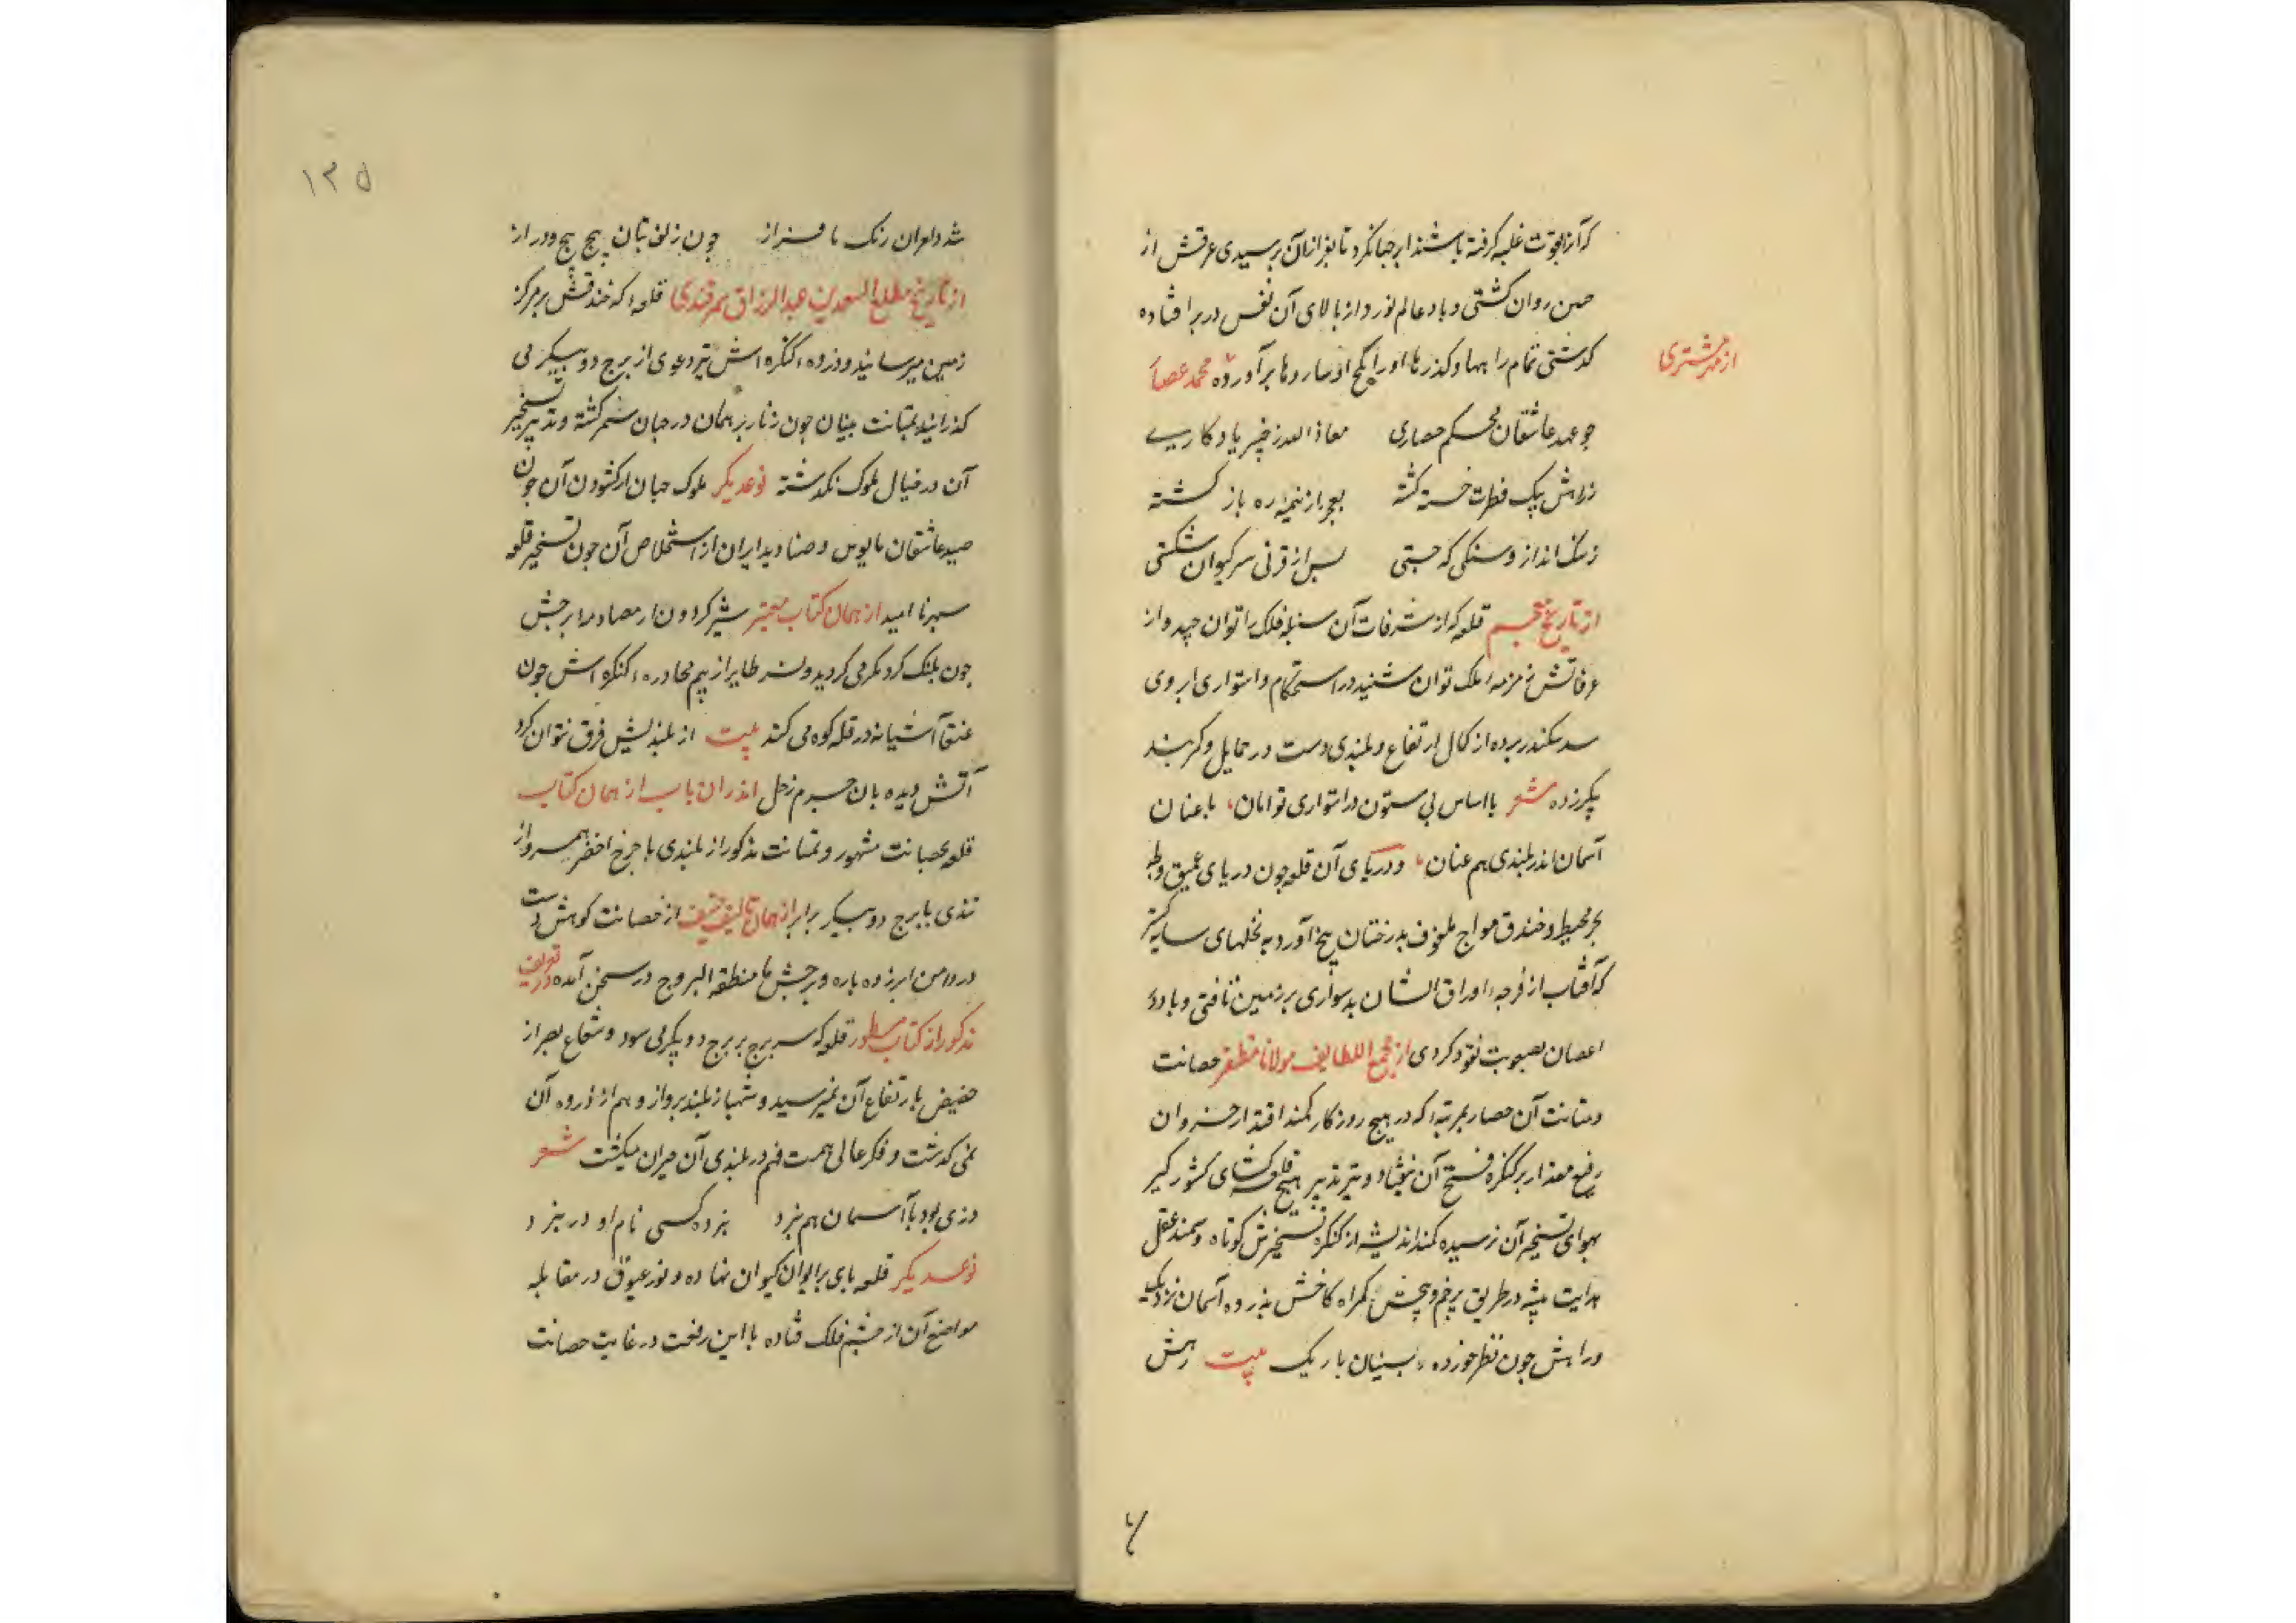 کرآنرا بقوت غلبه گرفته باشند ابر جبا نکرد تا بفراز آن برسیدی عرقش از
روان کشتی و باد عالم نورد از بالای آن نفس در بر افتاده
کذشتی تمام را بها و کذرها اورا بکج او سار وها برآورده محمد عصار
از مهر مشتری
چو عهد عاشقان محکم حصاری معاذ الله ز خیبر یادکاری
ز راهش پیک فطرت خسته کشته بعجز از نیمه ره باز کشته
ز سنک انداز و سنکی که جستی پس از قرنی سر کیوان شکستی
از تاریخ معجم قلعه کراز شرفات آن سنبله فلک را توان چید و از
غرفاتش زمزمه ملک توان شنید در استحکام و استواری ابروی
سد سکندر برده از کمال ارتفاع و بلندی دست در حمایل و کمربند
پیکر زده شعر با اساس بی ستون در استواری توامان، با عنان
آسمان اندر بلندی هم عنان، و دریای آن قلعه چون دریای عمیق و
بحر محیط و خندق مواج ملفوف بدرختان بیخ آور و به نخلهای سایه کستر
که آفتاب از فرجه اوراق ایشان بدشواری بر زمین تافتی و باد در
اغصان بصعوبت نفوذ کردی از مجمع اللطایف مولانا مظفر حصانت
و متانت آن حصار بمرتبه که در هیچ روزکار کمند اقتدار خسروان
رفیع مقدار بر کنکره فتح آن نیفتاد و تیر تدبیر هیچ قلعه کشای کشور کیر
بهوای تسخیر آن نرسیده کمند اندیشه از کنکره تسخیرش کوتاه و سمند عقل
هدایت پیشه در طریق پرخم و پیچش کمراه کاخش بذروه آسمان نزدیک
و راهش چون نظر خورده بینان باریک بیت رهش
۱۳۵
شد دامران رنک با فراز چون زلف بتان پیچ پیچ و دراز
از تاریخ مطلع السعدین عبدالرزاق سمرقندی قلعه که خندقش بر مرکز
زمین میرسانید و ذروه کنکره اش تیر دعوی از برج دو پیکر می
کذرانید بمتانت بنیان چون زنار برهمان در جهان سمر کشته و تدبیر تسخیر
آن در خیال ملوک نکذشته نوع دیکر ملوک جهان از کشودن آن چون
صید عاشقان مایوس و صنادید ایران از استخلاص آن چون تسخیر قلعه
سپهر نا امید از همان کتاب معتبر شیر کردون از مصادمه برجش
چون پلنک کرد کمر می کردید و نسر طایر از بیم محاوره کنکره اش چون
عنقا آشیانه در قله کوه می کند بیت از بلندیش فرق نتوان کرد
آتش دیده بان جرم زحل اندران باب از همان کتاب
قلعه بحصانت مشهور و بمتانت مذکور از بلندی با چرخ اخضر همسر و از
تندی با برج دو پیکر برابر از همان تالیف از حصانت کوهش دست
در دامن ابر زده باره و برجش با منطقة البروج در سخن آمده در تعریف
مذکور از کتاب مسطور قلعه که سر برج بر برج دو پیکر می سود و شعاع بصر از
حضیض بارتفاع آن نمیرسید و شهباز بلند پرواز و هم از ذروه آن
نمی کذشت و فکر عالی همت فهم در بلندی آن حیران میکشت شعر
دزی بود با آسمان هم نبرد نبرده کسی نام او در نبرد
نوع دیکر قلعه پای بر ایوان کیوان نهاده و نور عیوق در مقابله
مواضع آن از چشم فلک فتاده با این رفعت در غایت حصانت